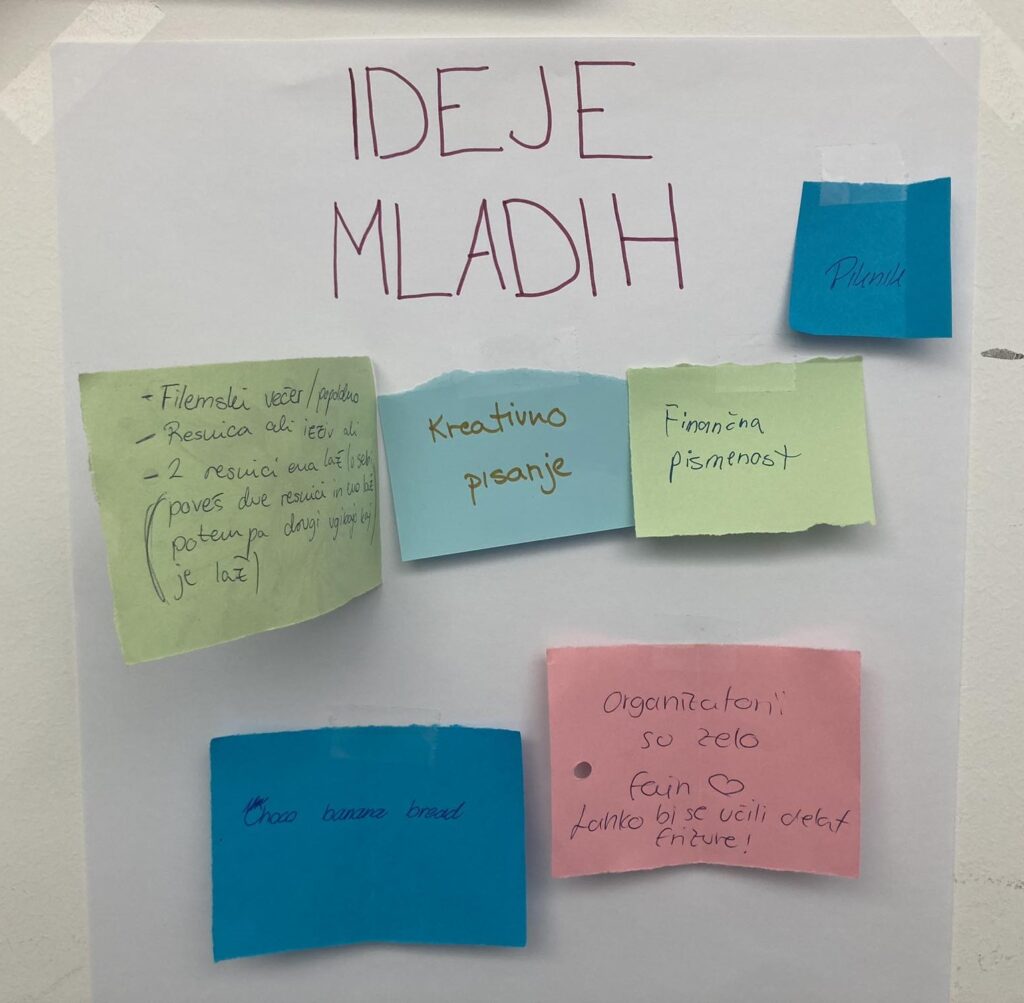 IDEJE
MLADIH
Piknik
- Filemski večer/popoldne
- Resnica ali izziv ali
- 2 resnici ena laž (o sebi
(poveš dve resnici in eno laž
potem pa drugi ugibajo kaj
je laž)
Kreativno
pisanje
Finančna
pismenost
Choco banana bread
Organizatorji
so zelo
fajn ♡
Lahko bi se učili delat
frizure!